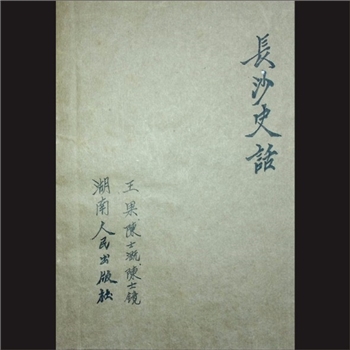 長沙史話
王果、陳士溉、陳士镜
湖南人民出版社